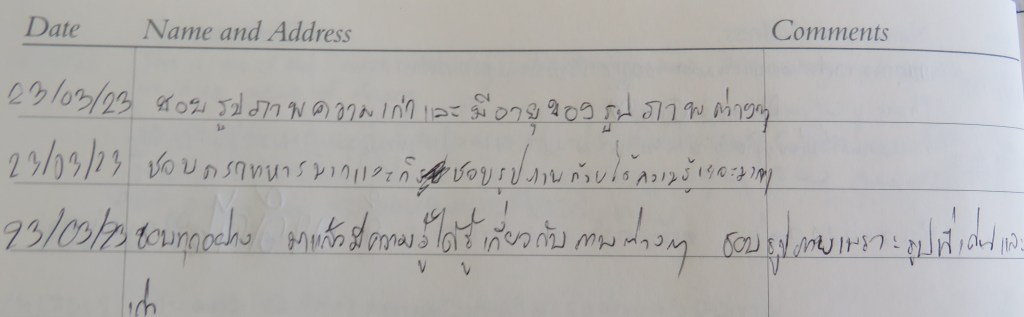 Date Name and Address Comments
23/03/23 ชอบรูปภาพความเก่าและมีอายุของรูปภาพต่างๆ
23/03/23 ชอบตราทหารมากและก็ชอบรูปภาพด้วยได้ความรู้เยอะมาก
23/03/23 ชอบทุกอย่าง มาแล้วมีความรู้ได้รู้เกี่ยวกับภาพต่างๆ ชอบรูปภาพเพราะรูปที่เด่นและ
เก่า